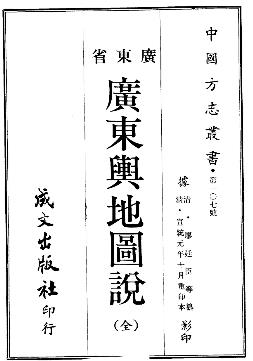 中國方志叢書・第一〇七號
據清・廖廷臣等撰
清・宣統元年十月重印本影印
廣東省
廣東輿地圖說
(全)
成文出版社印行